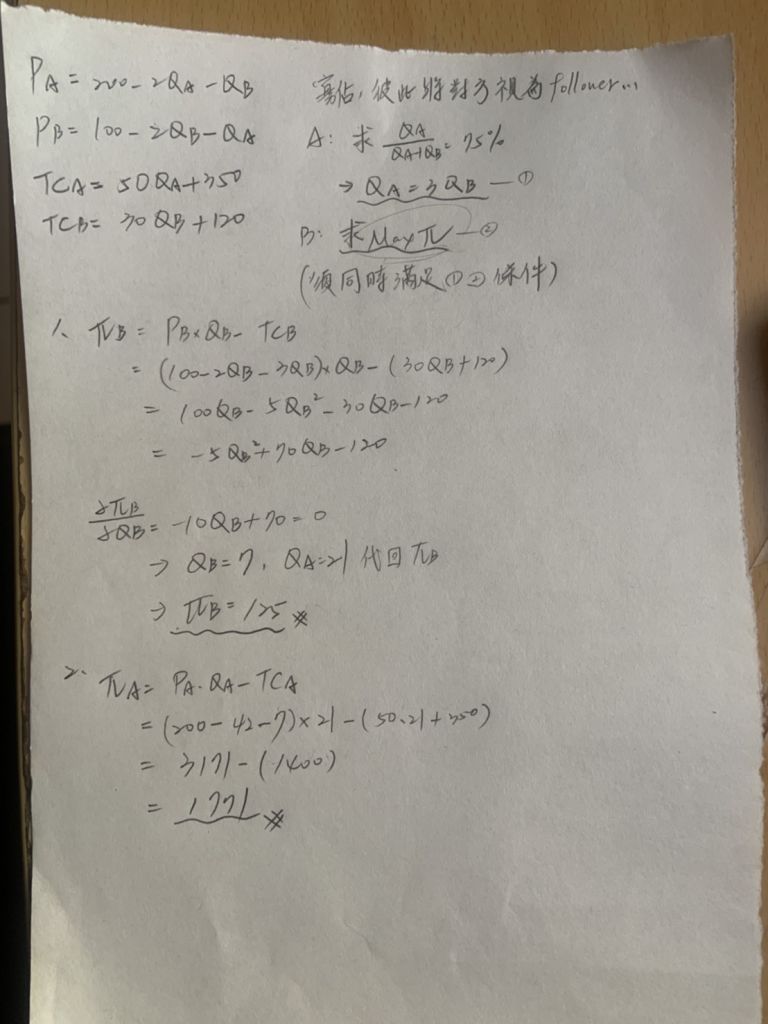 PA = 200 - 2QA - QB
PB = 100 - 2QB - QA
TCA = 50QA + 350
TCB = 30QB + 120
寡佔, 彼此將對方視為 follower...
A: 求 QA/(QA+QB) = 75%
→ QA = 3QB —①
B: 求 Max π —②
(須同時滿足①②條件)
1、 πB = PB×QB - TCB
= (100-2QB-3QB)×QB - (30QB+120)
= 100QB - 5QB² - 30QB - 120
= -5QB² + 70QB - 120
∂πB/∂QB = -10QB + 70 = 0
→ QB = 7, QA = 21 代回 πB
→ πB = 125 ※
2. πA = PA·QA - TCA
= (200 - 42 - 7)×21 - (50·21 + 350)
= 3171 - (1400)
= 1771 ※